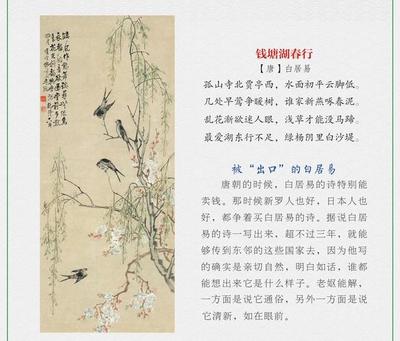 钱塘湖春行
【唐】白居易
孤山寺北贾亭西，水面初平云脚低。
几处早莺争暖树，谁家新燕啄春泥。
乱花渐欲迷人眼，浅草才能没马蹄。
最爱湖东行不足，绿杨阴里白沙堤。
被“出口”的白居易
唐朝的时候，白居易的诗特别能
卖钱。那时候新罗人也好，日本人也
好，都争着买白居易的诗。据说白居易
的诗一写出来，超不过三年，就能
够传到东邻的这些国家去，因为他写
的确实是亲切自然，明白如话，谁都
能想出来它是什么样子。老妪能解，
一方面是说它通俗，另外一方面是说
它清新，如在眼前。